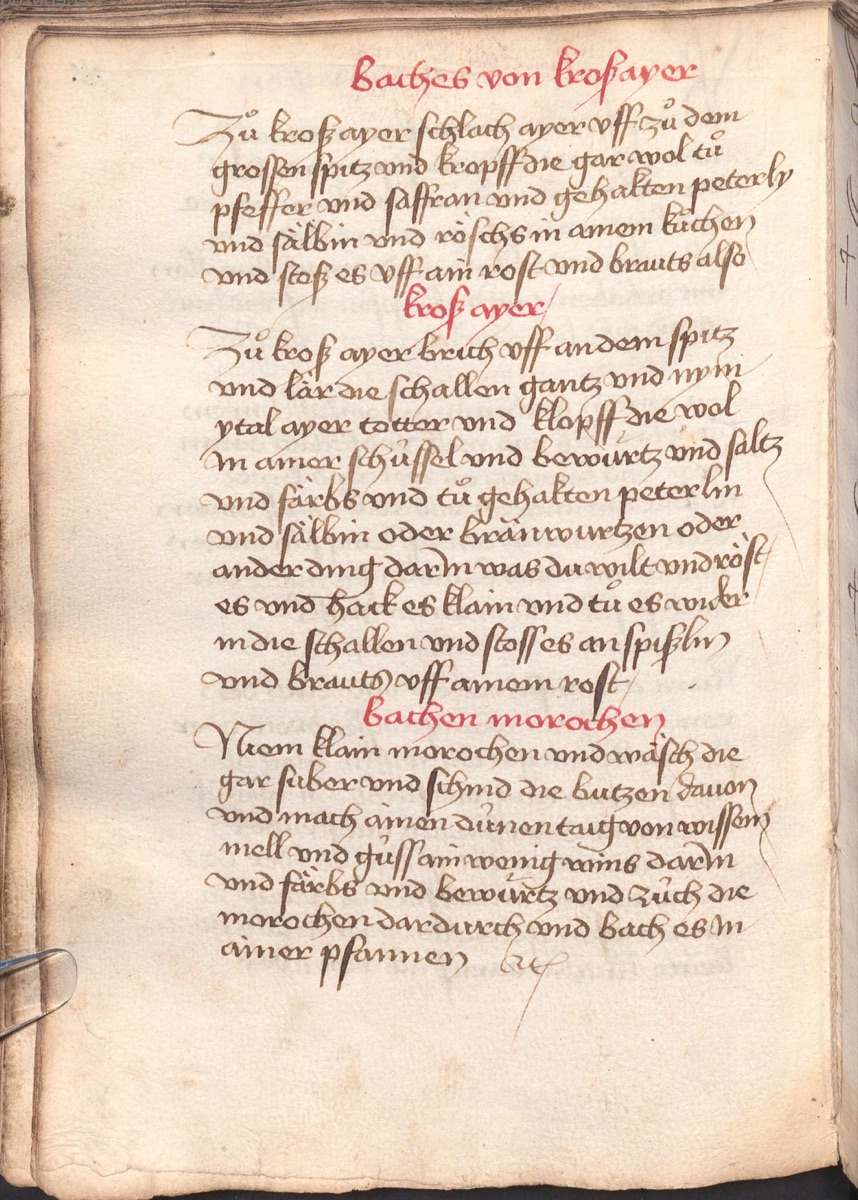 baches von kroßayer
Zů kroß ayer schlach ayer vff zů dem
grossen spitz vnd kropff die gar wol tů
pfeffer vnd saffran vnd gehakten peterly
vnd sälbin vnd röschs in ainem kůchen
vnd stoß es vff ain rost vnd brauts also
kroß ayer
Zů kroß ayer brich vff an dem spitz
vnd lär die schallen gantz vnd nym
ytal ayer totter vnd klopff die wol
in ainer schůssel vnd bewůrtz vnd saltz
vnd färbs vnd tů gehakten peterlin
vnd sälbin oder bränwurtzen oder
ander ding darin was du wilt vnd röst
es vnd hack es klain vnd tů es wider
in die schallen vnd stoss es an spißlin
vnd brauts vff ainem rost
bachen morochen
Niem klain morochen vnd wäsch die
gar suber vnd schnid die butzen dauon
vnd mach ainen dünen taig von wissem
mell vnd gůss ain wenig wins darin
vnd färbs vnd bewůrtz vnd zůch die
morochen dardurch vnd bach es in
ainer pfannen etc